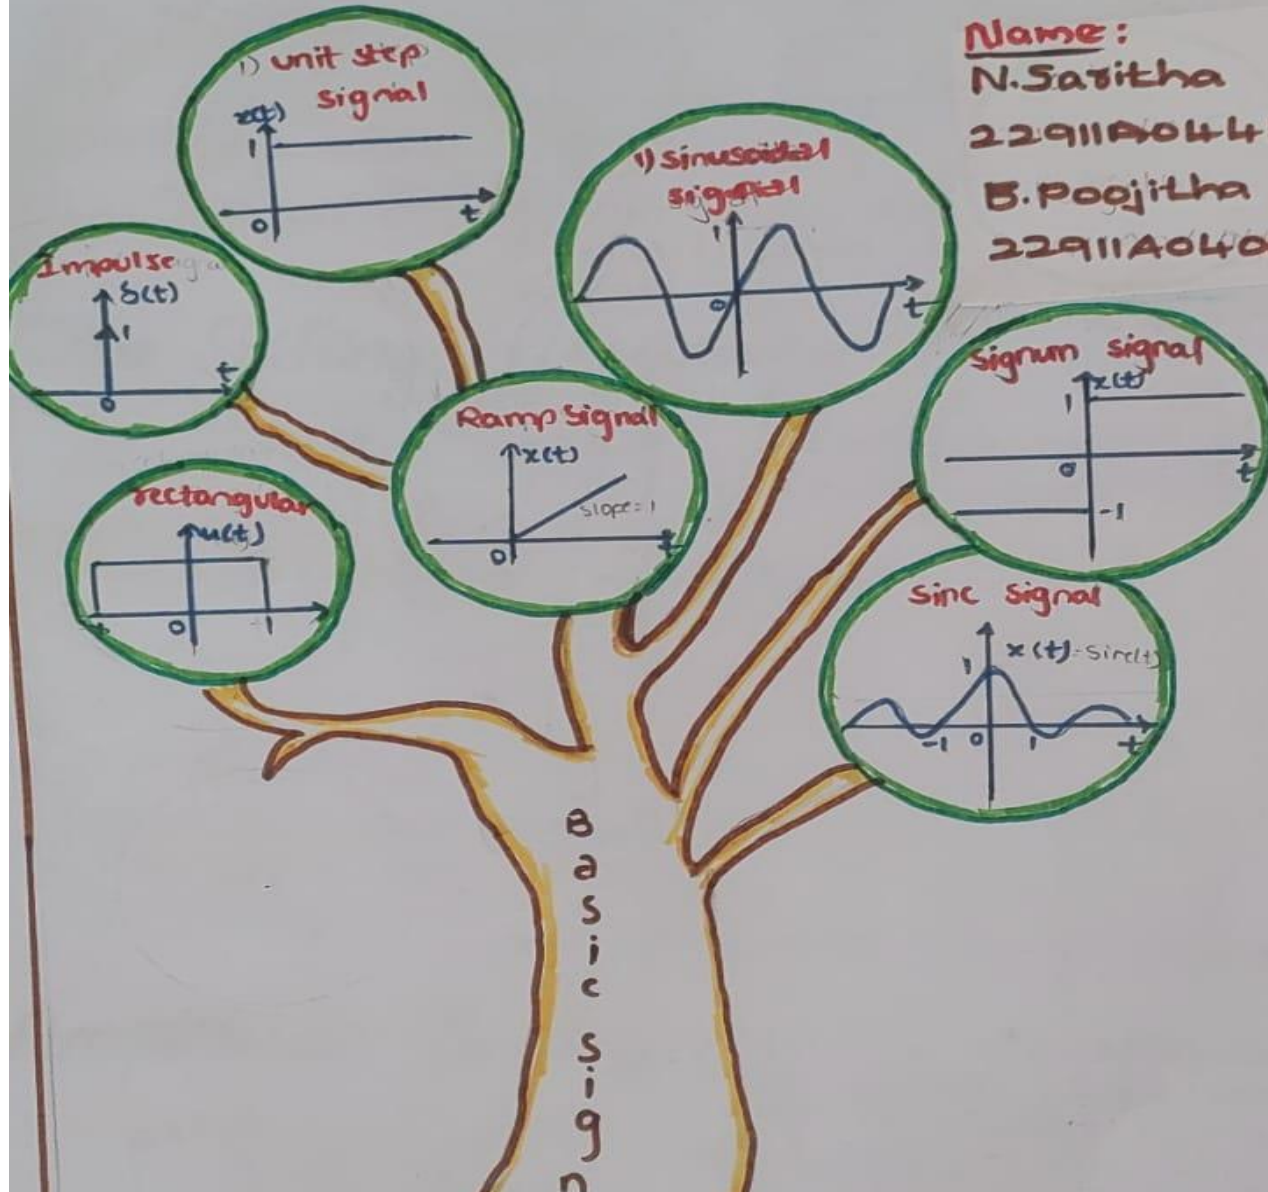 Name:
N.Saritha
22911A044
B.Poojitha
22911A040
1) unit step
signal
x(t)
1
0
t
1) sinusoidal
signal
1
0
t
Impulse
δ(t)
1
t
0
signum signal
x(t)
1
0
t
-1
Ramp Signal
x(t)
slope=1
0
t
rectangular
u(t)
0
1
sinc signal
x(t)=sinc(t)
1
-1
0
1
t
Basic sign